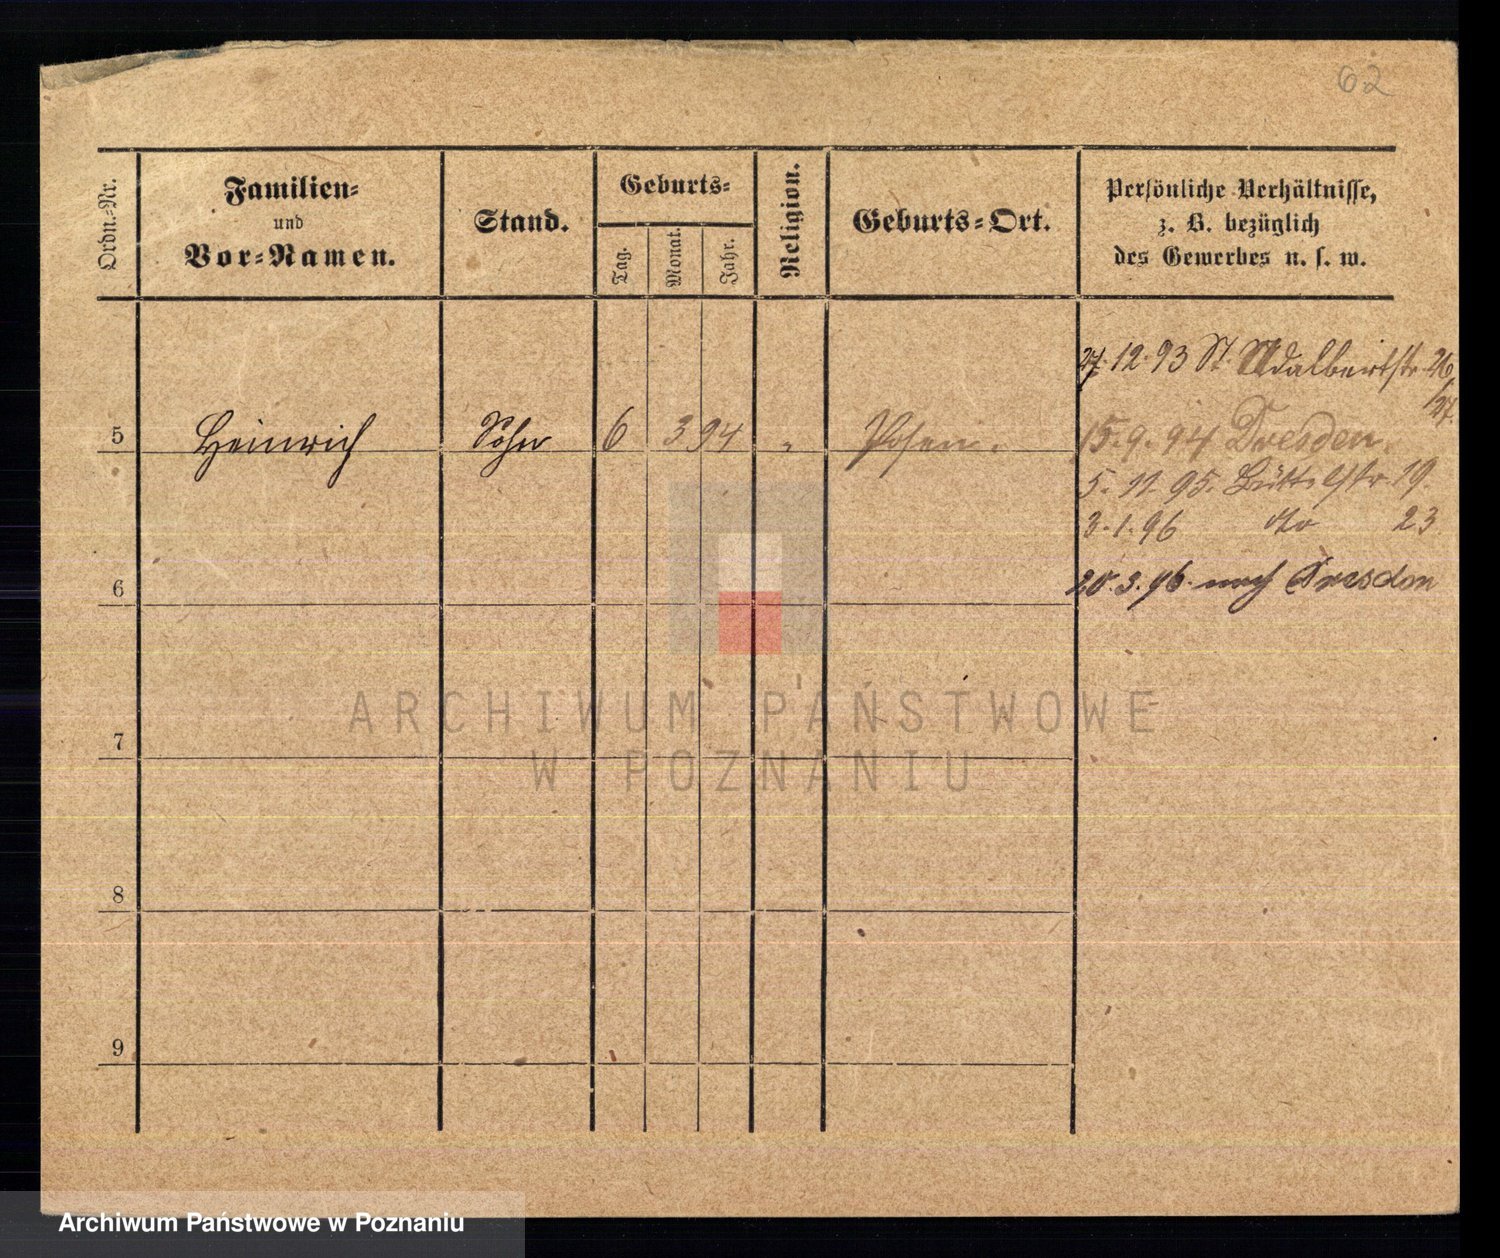 62
Ordn.-Nr.
Familien-
und
Vor-Namen.
Stand.
Geburts-
Tag.
Monat.
Jahr.
Religion.
Geburts-Ort.
Persönliche Verhältnisse,
z. B. bezüglich
des Gewerbes u. s. w.
27.12.93 St. Adalbertstr. 26/27.
5 Heinrich Sohn 6 3 94 " Posen.
15.9.94 Dresden.
5.11.95. Büttelstr. 19.
3.1.96 dto 23
6
20.3.96. nach Dresden
7
8
9
ARCHIWUM PAŃSTWOWE
W POZNANIU
Archiwum Państwowe w Poznaniu